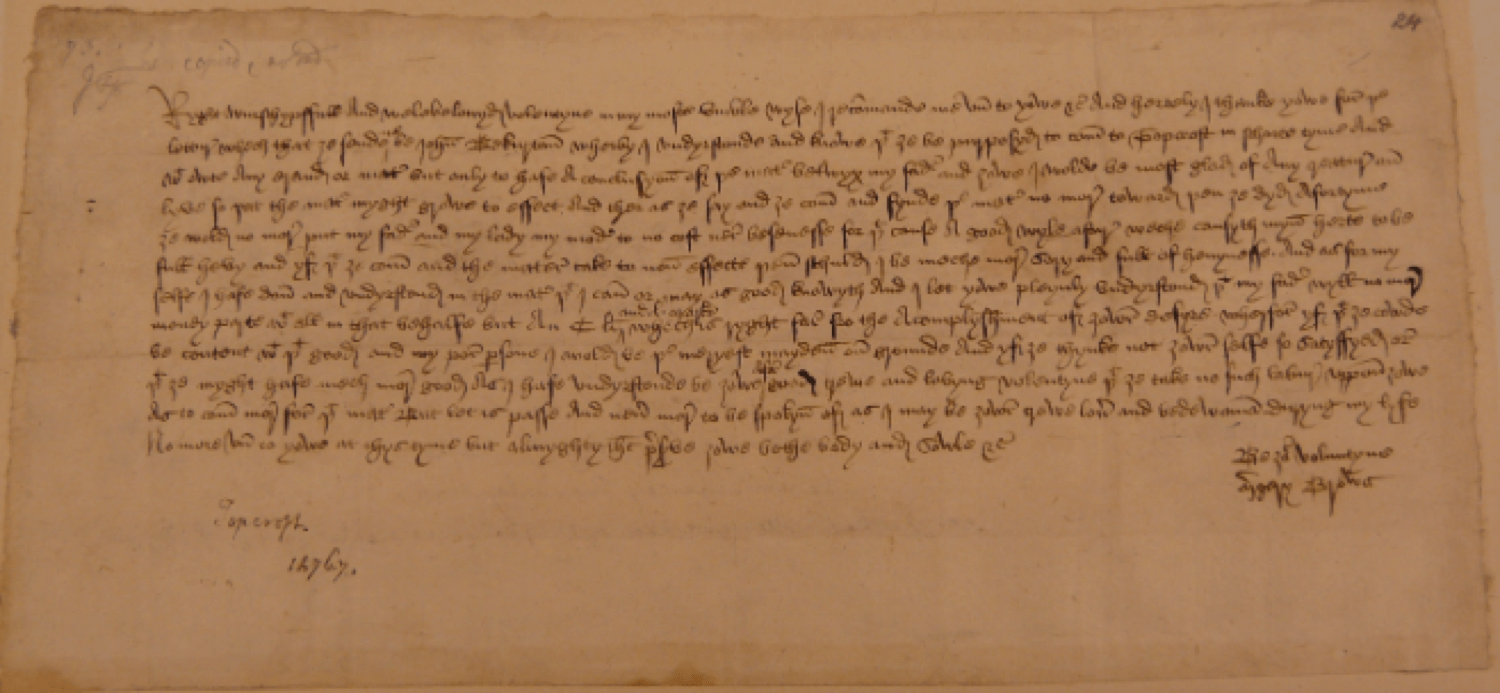 24
Ryght wurschypffull and welebelouyd Volentyne in my moste vmble wyse I recomande me vn to yowe &c And hertely I thanke yowe for þe
lettur whech that ȝe sende me be John Bekurton wherby I vndyrstonde and knowe þt ȝe be purposyd to com to Topcroft in schorte tyme And
wt owte Any erand or mater but only to hafe A conclusyon of þe mater betwyx my fadur and yowe I wolde be most glad of Any creatur on
lyve so þat the mater myght growe to effect And ther as ȝe say and ȝe com and fynde þe mater no mor toward þen ȝe dyd afortyme
ȝe wold no mor put my fadur and my lady my modur to no cost ner besenesse for þt cause A good wyle aftur weche causyth myn herte to be
full hevy and yf þt ȝe com and the mater take to non effecte þen schuld I be meche mor sory and full of heuynesse And as for my
selfe I hafe don and vndyrstond in the mater þt I can or may as good knowyth And I let yowe pleynly vndyrstond þt my fader wyll no mor
money parte wt all in that behalfe but An C li and l marke whech is ryght far fro the Acomplyshment of yowr desyre wherfor yf þt ȝe cowde
be content wt þt good and my por persone I wold be þe meryest mayden on grounde And yf ȝe thynke not yowr selfe so satysfyed or
þt ȝe myght hafe mech mor good As I hafe vndyrstonde be yowe afor good trewe and lovyng Volentyne þt ȝe take no such labur vppon yowe
As to com mor for þt mater But let is passe And neuer mor to be spokyn of as I may be yowr trewe lover and bedewoman duryng my lyfe
No more vn to yowe at thys tyme but almyghty Jhu preserve yowe bothe body and Sowle &c
Be yor Voluntyne
Mergery Brews
Topcroft.